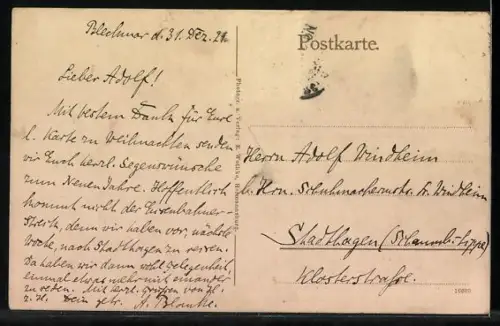 Blechmar d. 31. Dez. 21
Postkarte.
Lieber Adolf!
Mit bestem Dank für Eure
l. Karte zu Weihnachten senden
wir Euch herzl. Segenswünsche
zum Neuen Jahre. Hoffentlich
kommt nicht der Eisenbahner-
Streik, denn wir haben vor, nächste
Woche, nach Stadthagen zu reisen.
Da haben wir dann wohl Gelegenheit,
einmal etwas mehr mit einander
zu reden. Mit herzl. Grüßen von H. z. H.
Dein getr. A. Blanke.
Herrn Adolf Windheim
b. Hrn. Schuhmachermstr. Windheim
Stadthagen (Schaumb. Lippe)
Klosterstraße.